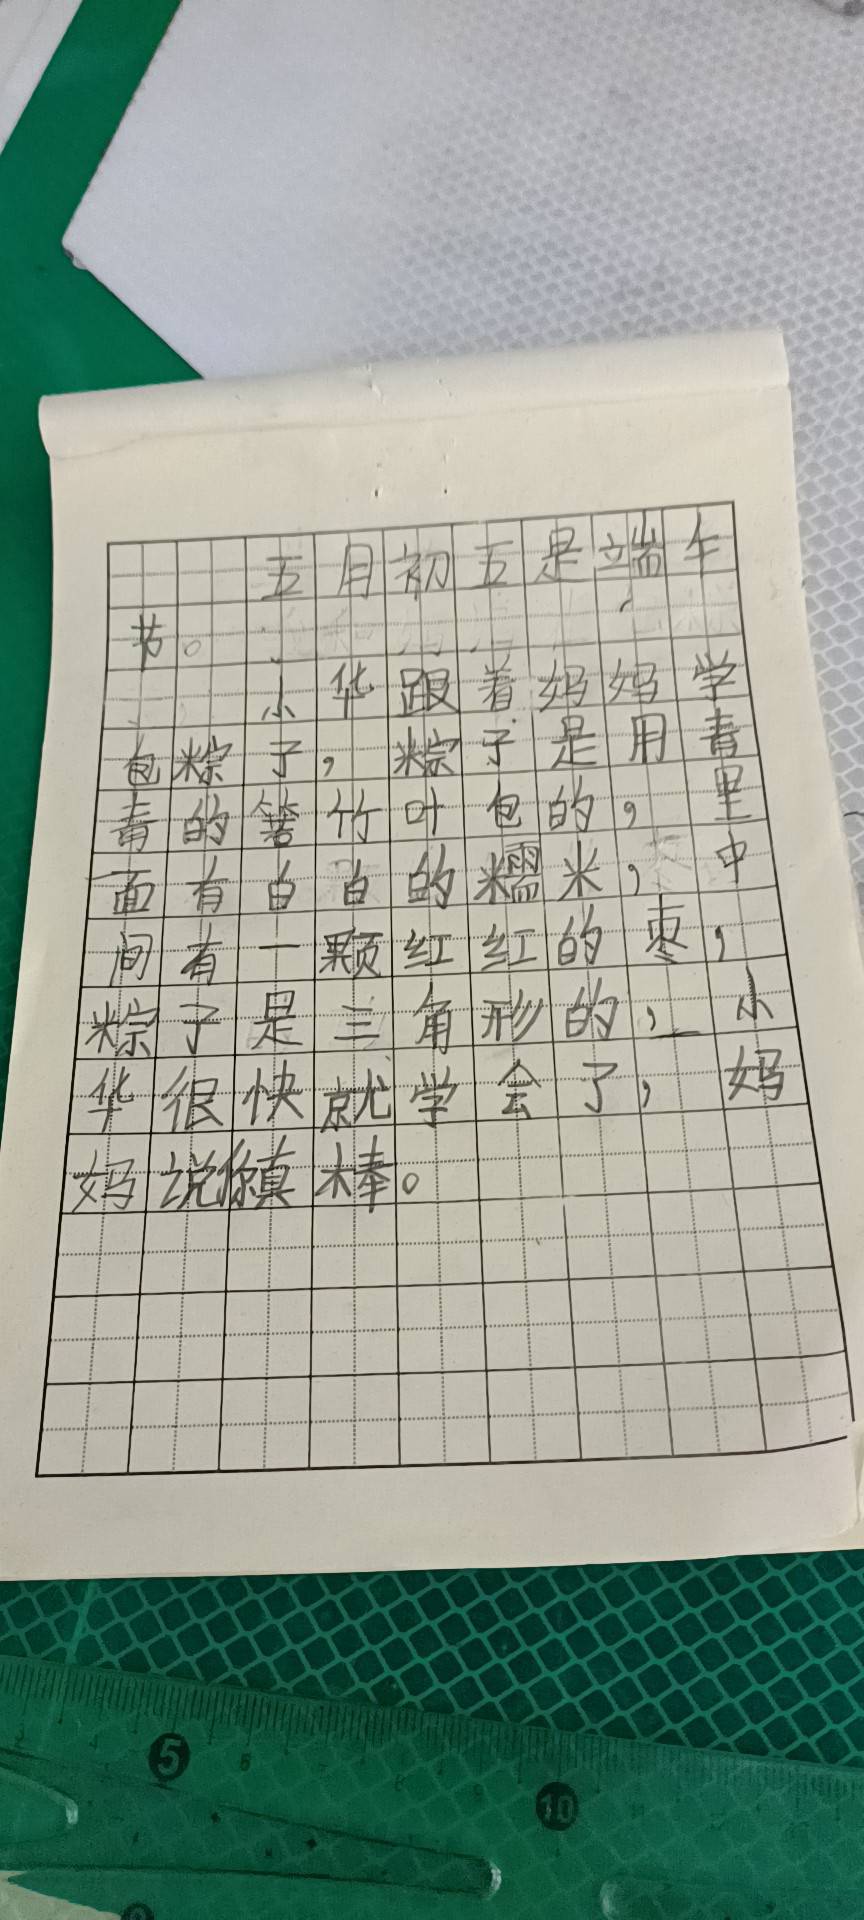 五月初五是端午
节。
小华跟着妈妈学
包粽子，粽子是用青
青的箬竹叶包的，里
面有白白的糯米，中
间有一颗红红的枣，
粽子是三角形的，小
华很快就学会了，妈
妈说你真棒。
5
10